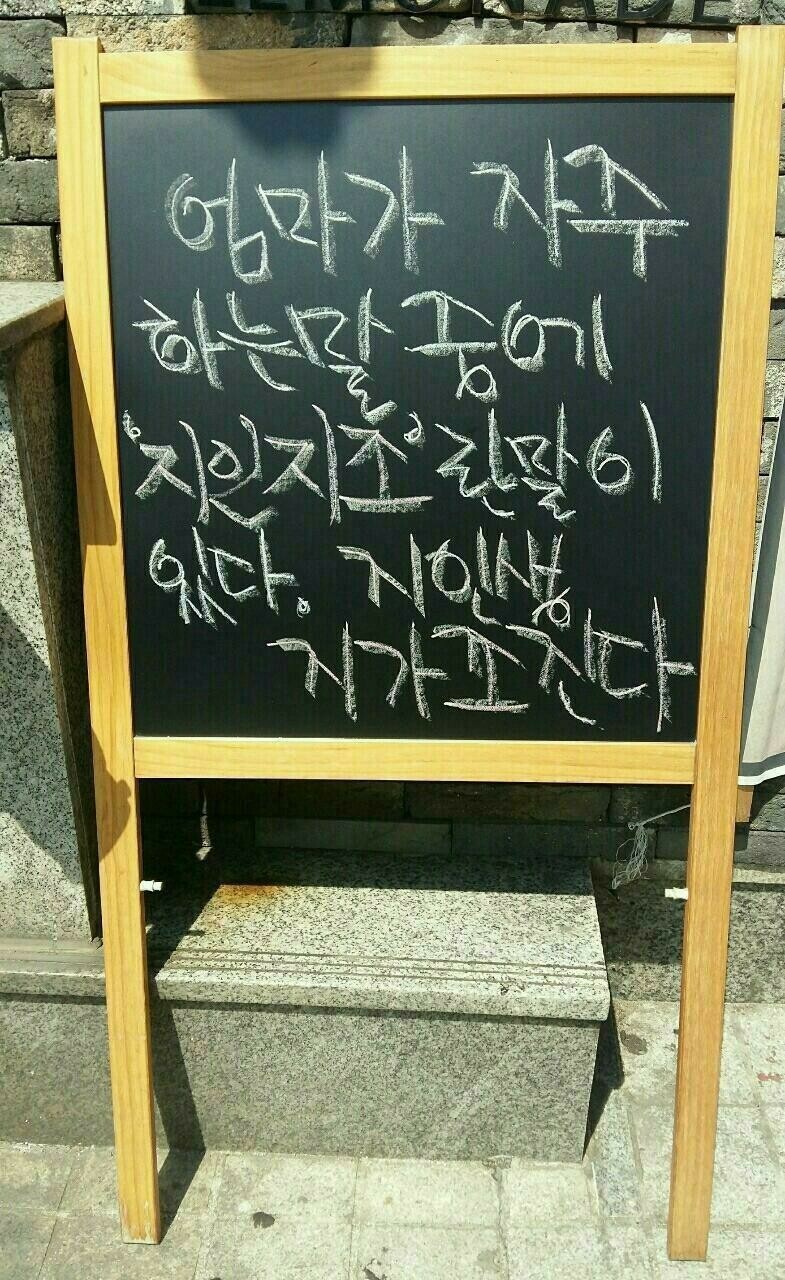 LEMONADE
엄마가 자주
하는말 중에
'지인지조' 란말이
있다. 지인생
지가조진다